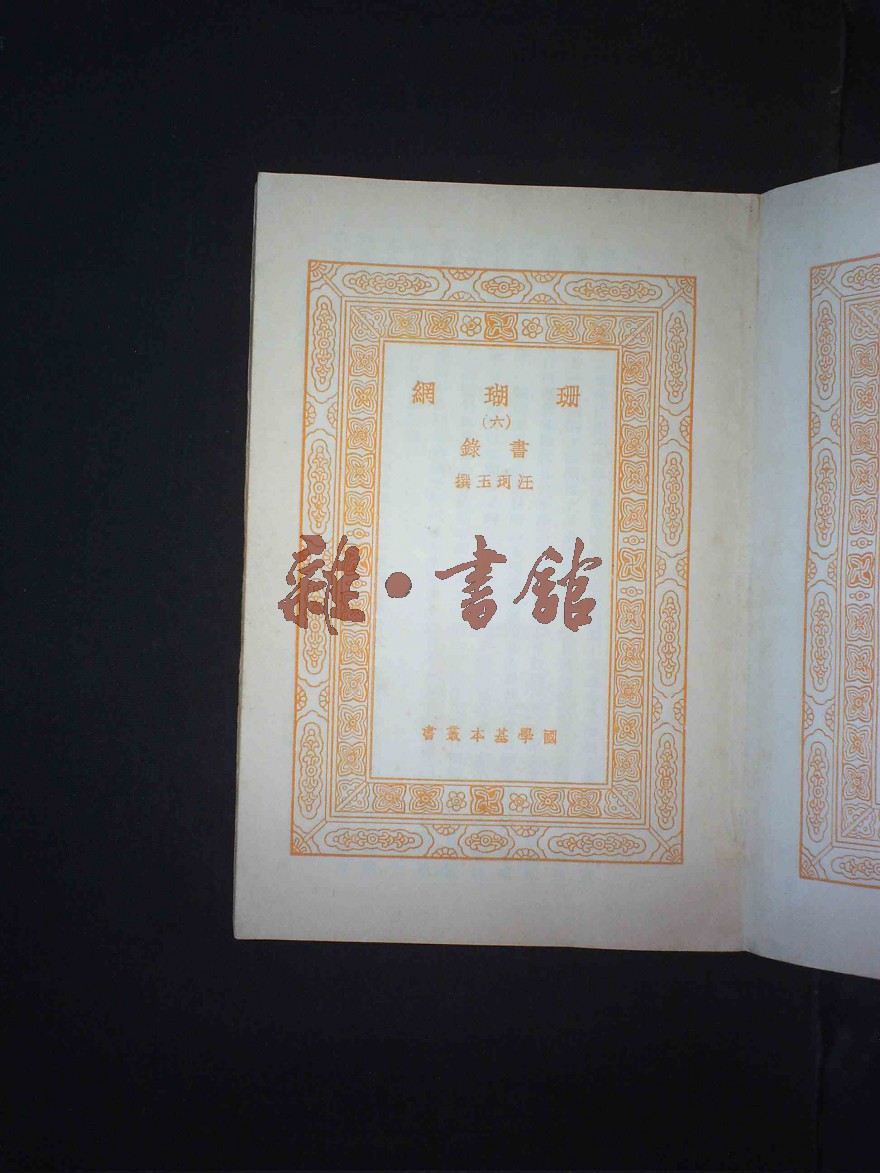 珊瑚網
(六)
書錄
汪珂玉撰
雜·書館
國學基本叢書